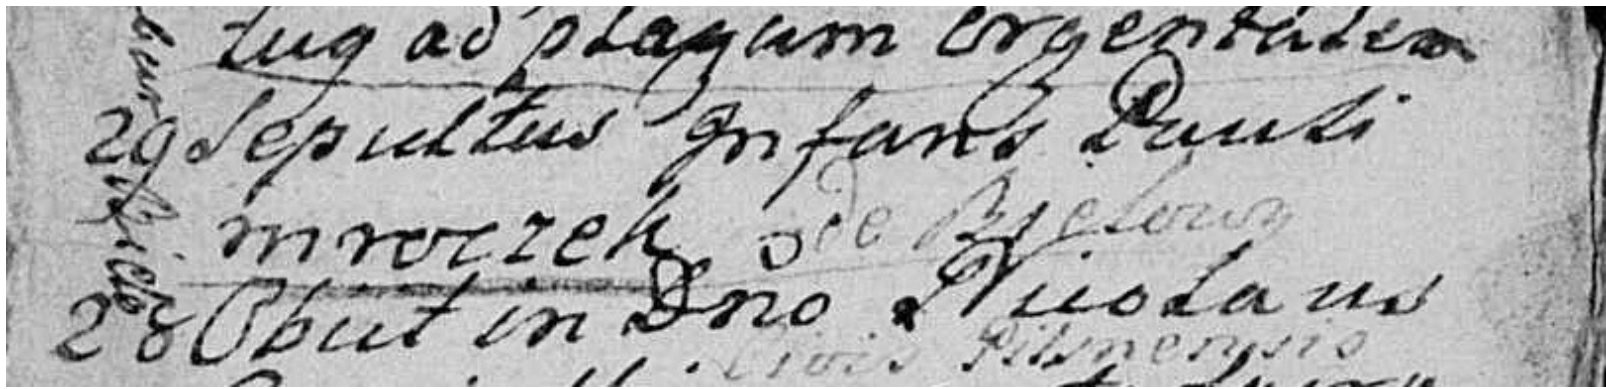 ad plagam orgentalem
29 Sepultus Infans Pauli
mroczek de Bielowy
28 Obiit in Dno Nicolaus
Civis Pilsnensis